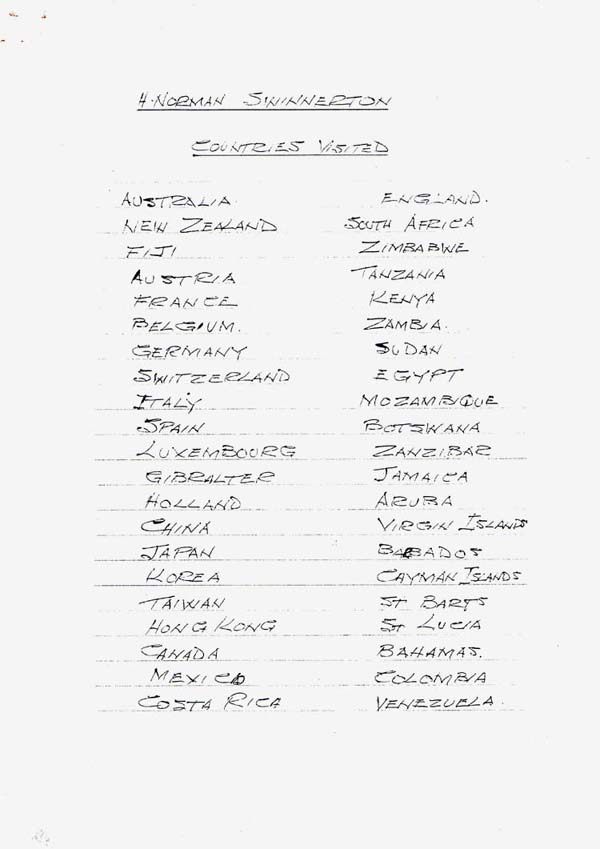 H. NORMAN SWINNERTON
COUNTRIES VISITED
AUSTRALIA.
NEW ZEALAND
FIJI
AUSTRIA
FRANCE
BELGIUM.
GERMANY
SWITZERLAND
ITALY
SPAIN
LUXEMBOURG
GIBRALTER
HOLLAND
CHINA
JAPAN
KOREA
TAIWAN
HONG KONG
CANADA
MEXICO
COSTA RICA
ENGLAND.
SOUTH AFRICA
ZIMBABWE
TANZANIA
KENYA
ZAMBIA.
SUDAN
EGYPT
MOZAMBIQUE
BOTSWANA
ZANZIBAR
JAMAICA
ARUBA
VIRGIN ISLANDS
BABADOS
CAYMAN ISLANDS
ST BARTS
ST LUCIA
BAHAMAS.
COLOMBIA
VENEZUELA.